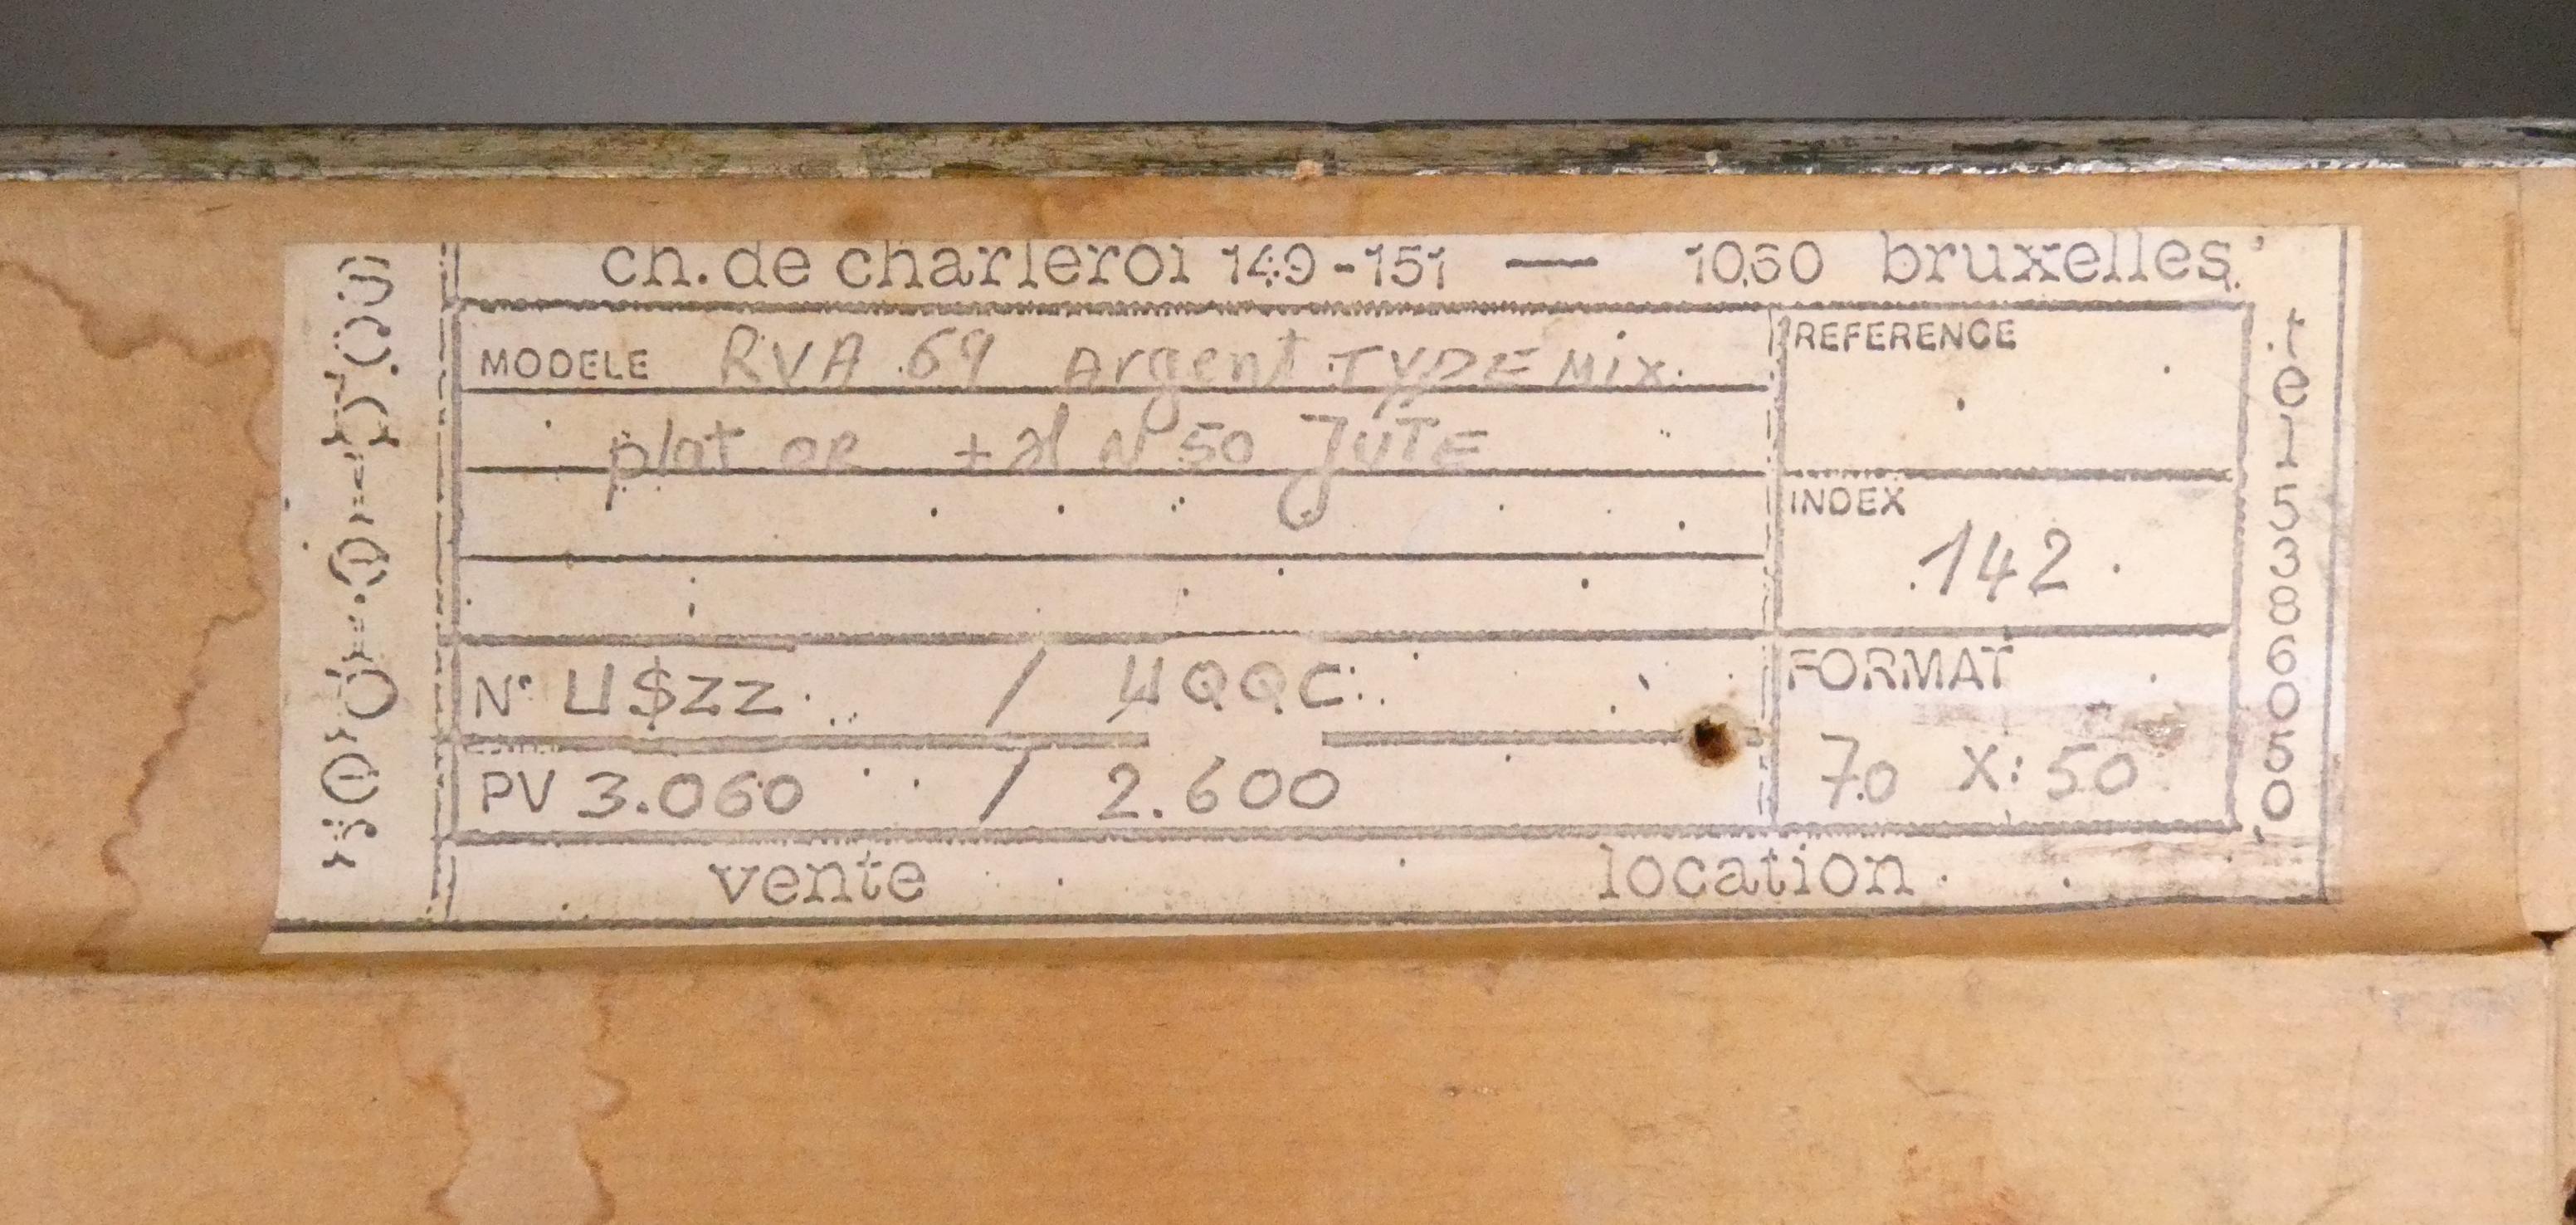 ch. de charleroi 149-151 — 1060 bruxelles
MODELE RVA 69 Argent TYPE Mix
plat OR + al N 50 JUTE
REFERENCE
INDEX
142
N° U$ZZ / UQQC
PV 3.060 / 2.600
FORMAT
70 X 50
vente location
tel 5386050